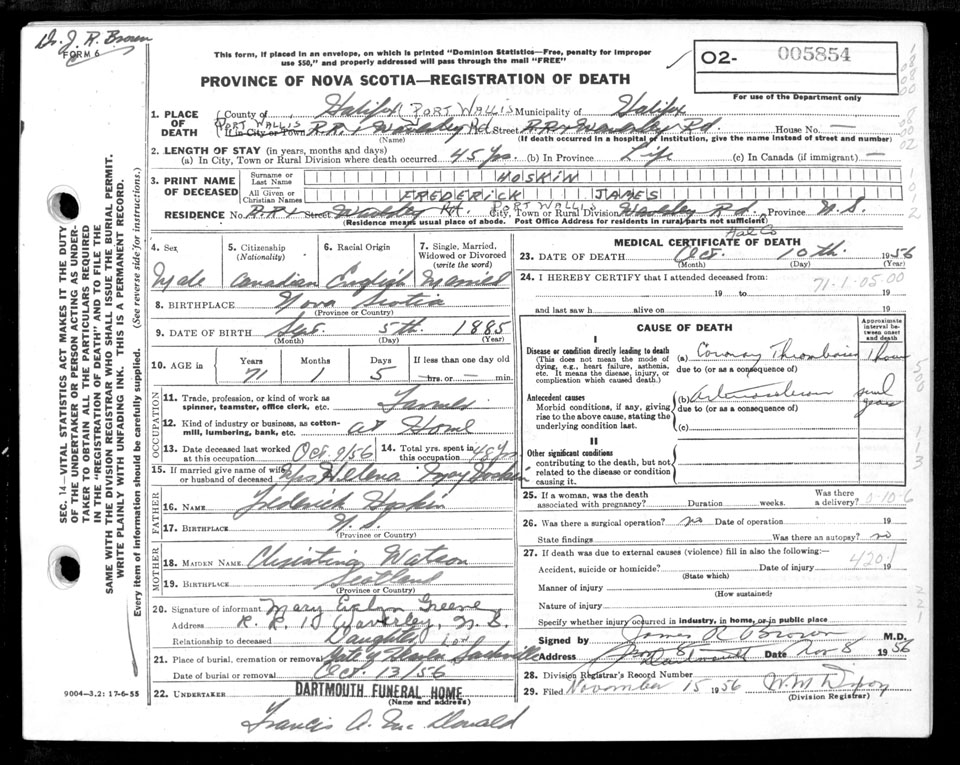 Dr. J. R. Brown
FORM 6
This form, if placed in an envelope, on which is printed "Dominion Statistics—Free, penalty for improper
use $50," and properly addressed will pass through the mail "FREE"
PROVINCE OF NOVA SCOTIA—REGISTRATION OF DEATH
O2- 005854
For use of the Department only
1. PLACE OF DEATH
County of Halifax PORT WALLIS Municipality of Halifax
PORT WALLIS
In City or Town R.R. 1 Waverley Rd Street R.R. 1 Waverley Rd House No. —
(Name) (If death occurred in a hospital or institution, give the name instead of street and number)
2. LENGTH OF STAY (in years, months and days)
(a) In City, Town or Rural Division where death occurred 45 yrs. (b) In Province Life (c) In Canada (if immigrant) —
3. PRINT NAME OF DECEASED
Surname or Last Name HOSKIN
All Given or Christian Names FREDERICK JAMES
PORT WALLIS
RESIDENCE No. R.R. 1 Street Waverley Rd. City, Town or Rural Division Waverley Rd. Province N.S.
(Residence means usual place of abode. Post Office Address for residents in rural parts not sufficient)
Hal Co
4. Sex 5. Citizenship (Nationality) 6. Racial Origin 7. Single, Married, Widowed or Divorced (write the word)
Male Canadian English Married
8. BIRTHPLACE Nova Scotia
(Province or Country)
9. DATE OF BIRTH Sept. 5th. 1885
(Month) (Day) (Year)
10. AGE Years 71 Months 1 Days 5 If less than one day old — hrs. or — min.
OCCUPATION
11. Trade, profession, or kind of work as spinner, teamster, office clerk, etc. Farmer
12. Kind of industry or business, as cotton-mill, lumbering, bank, etc. at Home
13. Date deceased last worked at this occupation Oct. 9/56 14. Total yrs. spent in this occupation 48 yrs
15. If married give name of wife or husband of deceased Mrs Helena May Hoskin
FATHER
16. NAME Frederick Hoskin
17. BIRTHPLACE N.S.
(Province or Country)
MOTHER
18. MAIDEN NAME Christina Watson
19. BIRTHPLACE Scotland
(Province or Country)
20. Signature of informant Mary Evelyn Greene
Address R.R. 1 Waverley, N.S.
Relationship to deceased Daughter
21. Place of burial, cremation or removal Gate of Heaven Sackville
Date of burial or removal Oct. 13/56
22. UNDERTAKER DARTMOUTH FUNERAL HOME
(Name and address)
Francis A. Mc Donald
9004—3.2: 17-6-55
MEDICAL CERTIFICATE OF DEATH
23. DATE OF DEATH Oct. 10th. 1956
(Month) (Day) (Year)
24. I HEREBY CERTIFY that I attended deceased from:
71-1-05-00
19 to 19
and last saw h alive on 19
CAUSE OF DEATH
Approximate interval between onset and death
I
Disease or condition directly leading to death
(This does not mean the mode of dying, e.g., heart failure, asthenia, etc. It means the disease, injury, or complication which caused death.)
(a) Coronary Thrombosis 1 hour
due to (or as a consequence of)
Antecedent causes
Morbid conditions, if any, giving rise to the above cause, stating the underlying condition last.
(b) Arteriosclerosis several years
due to (or as a consequence of)
(c)
II
Other significant conditions
contributing to the death, but not related to the disease or condition causing it.
25. If a woman, was the death associated with pregnancy? Duration weeks. Was there a delivery?
0-10-6
26. Was there a surgical operation? no Date of operation 19
State findings Was there an autopsy? no
27. If death was due to external causes (violence) fill in also the following:—
Accident, suicide or homicide? Date of injury 19
(State which)
420.1
Manner of injury
(How sustained)
Nature of injury
Specify whether injury occurred in industry, in home, or in public place
Signed by James R Brown M.D.
Address Dartmouth Date Nov 8 1956
28. Division Registrar's Record Number
29. Filed November 15 1956 W M Dixon
(Division Registrar)
SEC. 14—VITAL STATISTICS ACT MAKES IT THE DUTY
OF THE UNDERTAKER OR PERSON ACTING AS UNDER-
TAKER TO OBTAIN ALL THE PARTICULARS REQUIRED
IN THE "REGISTRATION OF DEATH" AND TO FILE THE
SAME WITH THE DIVISION REGISTRAR WHO SHALL ISSUE THE BURIAL PERMIT.
WRITE PLAINLY WITH UNFADING INK. THIS IS A PERMANENT RECORD.
Every item of information should be carefully supplied. (See reverse side for instructions.)